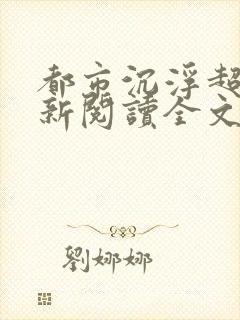 都市沉浮超
新閱讀全文
劉娜娜